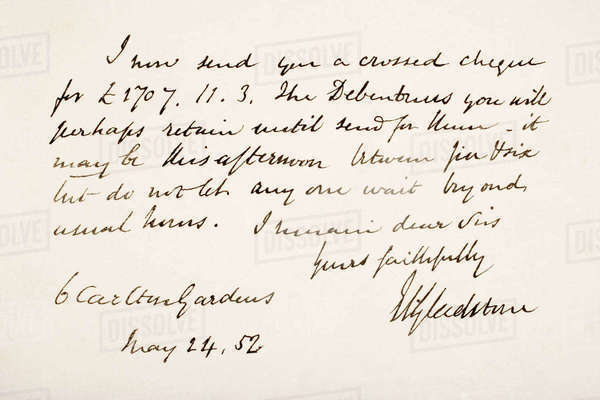 I now send you a crossed cheque
for £1707. 11. 3. The Debentures you will
perhaps retain until send for them - it
may be this afternoon between five & six
but do not let any one wait beyond
usual hours. I remain dear Sirs
Yours faithfully
WGladstone
6 Carlton Gardens
May 24. 52
DISSOLVE